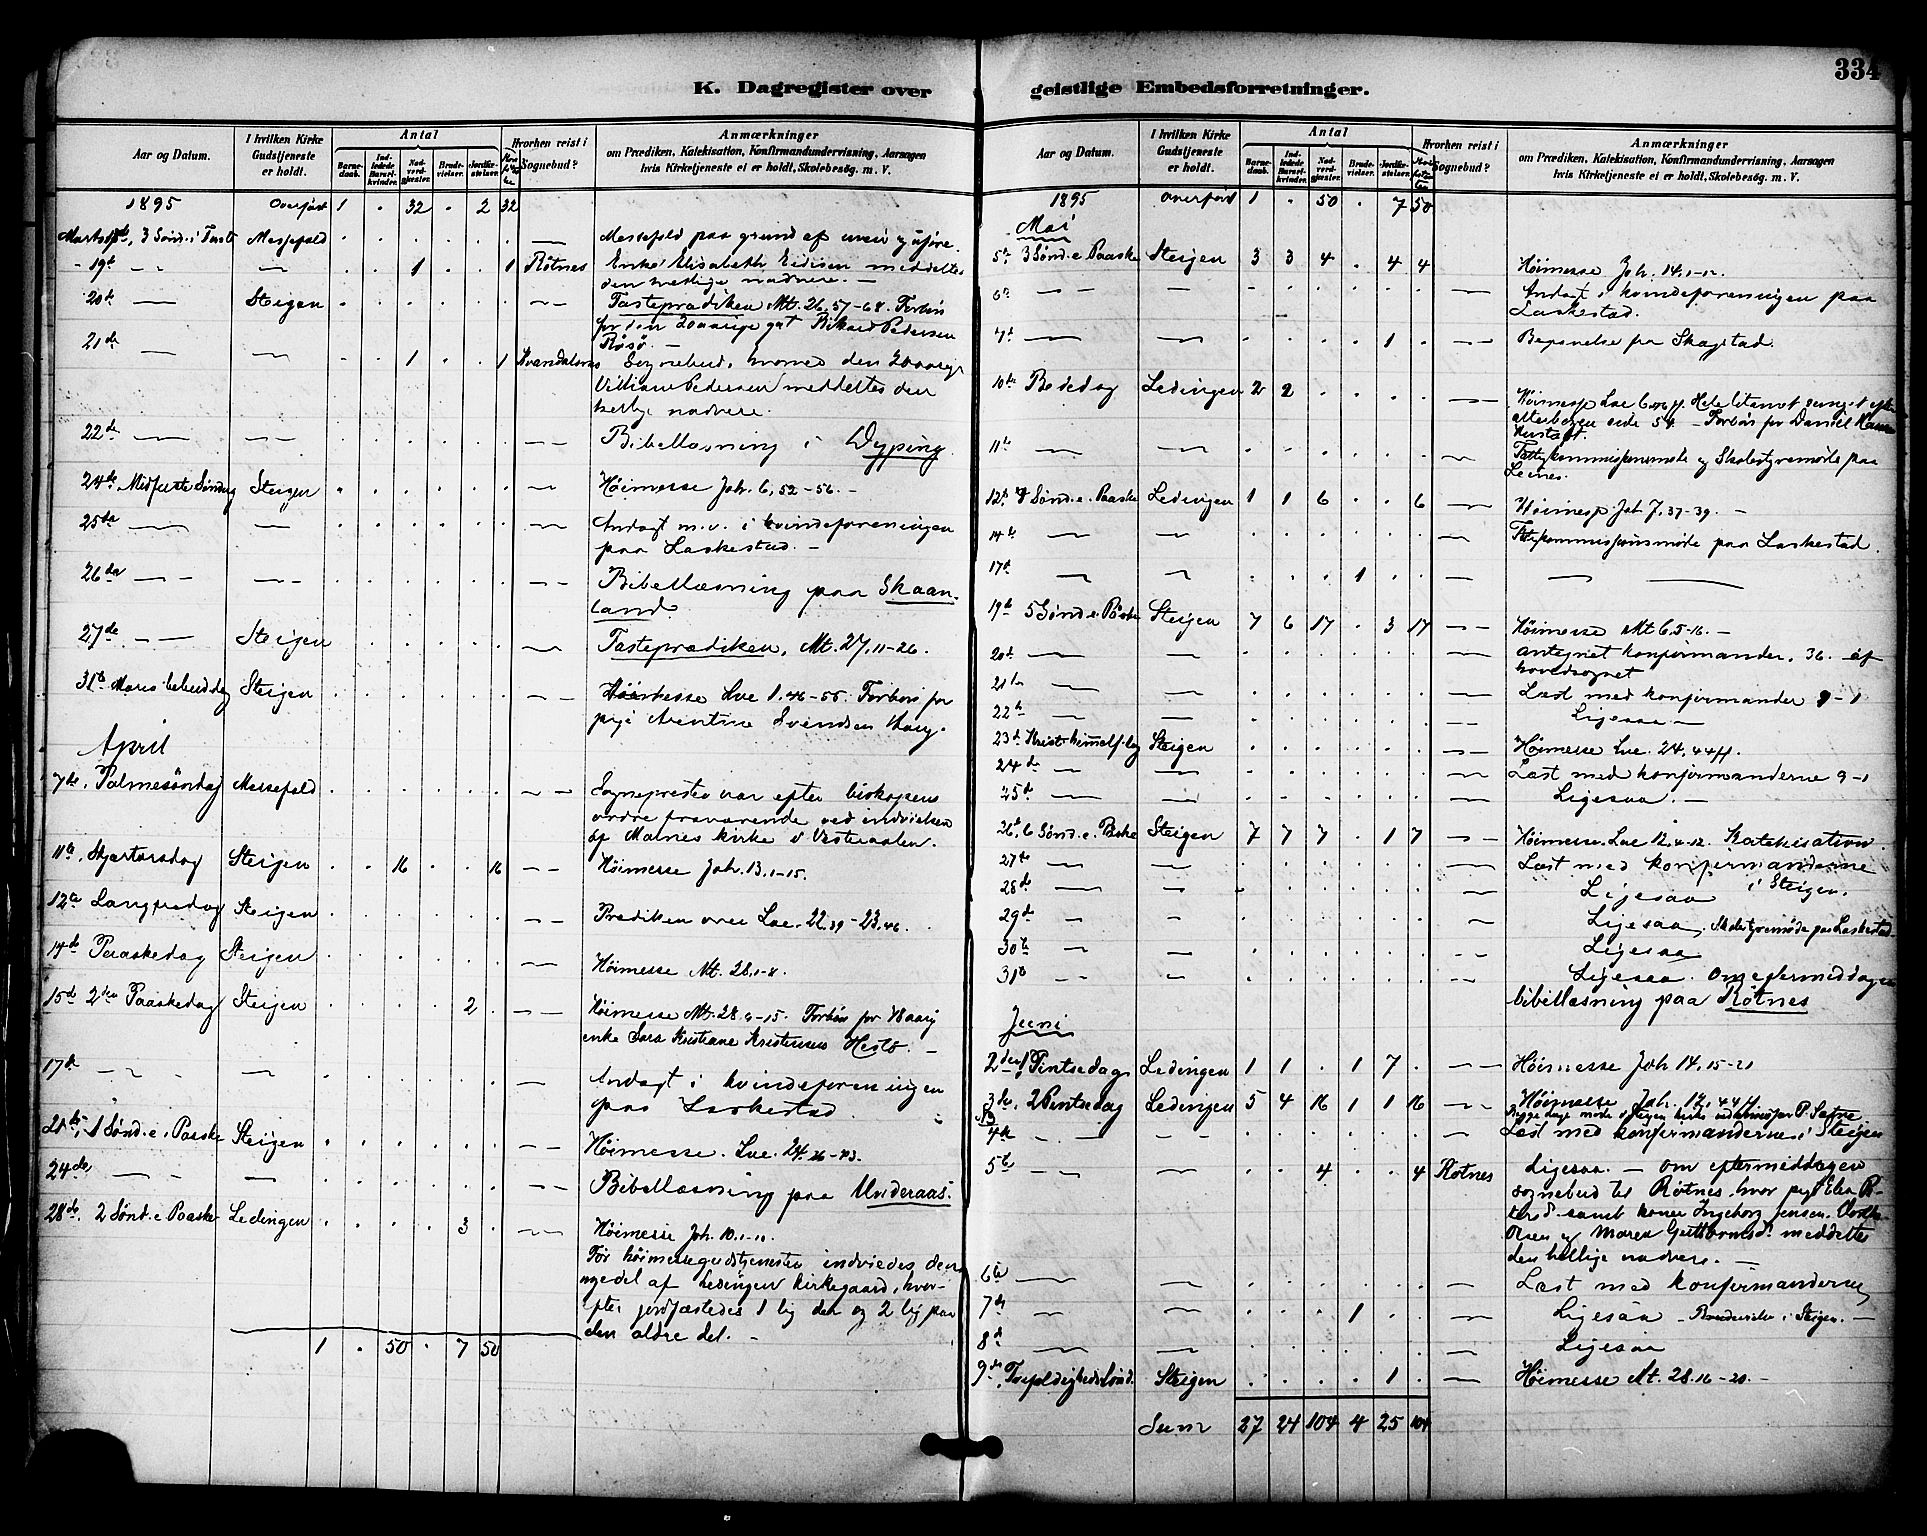 334
K. Dagregister over geistlige Embedsforretninger.
Aar og Datum.
I hvilken Kirke Gudstjeneste er holdt.
Antal
Barnedaab.
Indledede Barselkvinder.
Nadverdgjester.
Brudevielser.
Jordfæstelser.
Hvorhen reist i Sognebud?
Anmærkninger
om Prædiken, Katekisation, Konfirmandundervisning, Aarsagen
hvis Kirketjeneste ei er holdt, Skolebesøg. m. V.
1895 Overført 1 . 32 . 2 32
3 Sønd. i Faste Messefald Messefald paa grund af uveir og uføre.
19de 1 1 Rötnes Enke Elisabeth Eidissen meddeltes
den hellige nadvere. —
20de Steigen Fasteprædiken Mt. 26, 57-68. Forbön
for den 20aarige gut Rikard Pedersen
Rösö. —
21de 1 1 Svendalsnes Sognebud, hvormed den 20aarige
Villiam Pedersen meddeltes den
hellige nadvere.
22de Bibellæsning i Dypping.
24de Midfaste Søndag Steigen Höimesse Joh. 6, 52-56. —
25de Andagt m.v. i kvindeforeningen
paa Laskestad. —
26de Bibellæsning paa Skaan-
land.
27de Steigen Fasteprædiken, Mt. 27, 11-26.
31te Marias bebud.dag Steigen Höimesse Luc 1. 46-55. Forbön for
pige Arentine Svendsen
April
7de. Palmesöndag Messefald Sognepresten var efter biskopens
ordre fraværende ved indvielsen
af Malnes kirke i Vesteraalen.
11te. Skjærtorsdag Steigen 16 16 Höimesse Joh. 13. 1-15.
12te Langfredag Steigen Prædiken over Luc. 22. 39-23. 46.
14de Paaskedag Steigen Höimesse Mt. 28. 1-8.
15de 2den Paaskedag Steigen 2 Höimesse Mt. 28. 9-15. Forbön for 78aarig
enke Sara Kristiane Kristensen
17de Andagt i kvindeforeningen
paa Laskestad
21de, 1 Sönd. e. Paaske Steigen Höimesse. Luc. 24. 36-43.
24de Bibellæsning paa Underaas.
28de. 2 Sönd. e Paaske Lødingen 3 Höimesse Joh. 10. 1-11.
Før höimessegudstjenesten indviedes den
nye del af Lødingen kirkegaard, hvor-
efter jordfæstedes 1 lig der og 2 lig paa
den ældre del. —
1 . 50 . 7 50
Aar og Datum.
I hvilken Kirke Gudstjeneste er holdt.
Antal
Barnedaab.
Indledede Barselkvinder.
Nadverdgjester.
Brudevielser.
Jordfæstelser.
Hvorhen reist i Sognebud?
Anmærkninger
om Prædiken, Katekisation, Konfirmandundervisning, Aarsagen
hvis Kirketjeneste ei er holdt, Skolebesøg. m. V.
1895 Overført 1 . 50 . 7 50
Mai
5te 3 Sönd. e. Paaske Steigen 3 3 4 . 4 4 Höimesse Joh. 14. 1-12.
6te Andagt i kvindeforeningen paa
Laskestad.
7de 1 Begravelse fra Skagstad.
10de Bededag Lødingen 2 2 Höimesse Luc 6. 46 ff. Hele litaniet sunget efter
alterbogen side 54. — Forbön for Daniel
11te Fattigkommissionsmöte og Skolestyremöte paa
Leines.
12te 4 Sönd. e. Paaske Lødingen 1 1 6 . . 6 Höimesse Joh 7, 37-39. —
14de Fattigkommissionsmöte paa Laskestad.
17de 1
19de 5 Sönd. e. Paaske Steigen 7 6 17 . 3 17 Höimesse Mt 6, 5-16. —
20de antegnet konfirmander, 36. af
hovedsognet
21de Læst med konfirmander 9-1
22de Ligesaa —
23de Kristi himmelf.dag Steigen Höimesse Luc. 24, 44 ff.
24de Læst med konfirmanderne 9-1
25de Ligesaa. —
26de, 6 Sönd. e. Paaske Steigen 7 7 7 . 1 7 Höimesse. Luc 12. 4-12. Katekisation.
27de Læst med konfirmanderne
i Steigen.
28de Ligesaa
29de Ligesaa. Skolestyremöde paa Laskestad.
30te Ligesaa
31te Ligesaa. Om eftermiddagen
bibellæsning paa Rötnes
Juni
2den, 1 Pintsedag Lødingen 1 1 . 1 7 Höimesse Joh 14, 15-21
3die, 2 Pintsedag Lødingen 5 4 16 1 1 16 Höimesse Joh. 12, 44 ff.
4de Læst med konfirmanderne i Steigen
5te 4 4 Rötnes Ligesaa. — Om eftermiddagen
sognebud til Rötnes, hvor
samt konen Ingeborg Jensen,
Olsen og Maren Guttormsd. meddeltes
den hellige nadvere. —
6te Læst med konfirmanderne
7de 1 Ligesaa — Brudevielse i Steigen. —
8de Ligesaa
9de, Trefoldigheds sönd. Steigen 1 Höimesse Mt. 28. 16-20. —
Sum 27 24 104 4 25 104